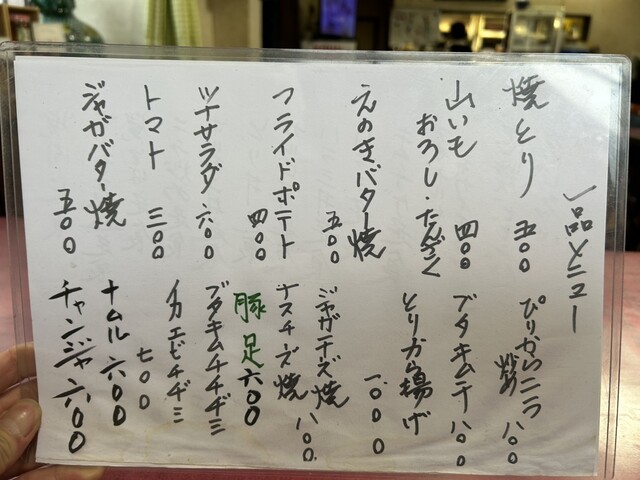 一品メニュー
焼とり 五〇〇
山いも
おろし・たんざく 四〇〇
えのきバター焼 五〇〇
フライドポテト 四〇〇
ツナサラダ 六〇〇
トマト 三〇〇
ジャガバター焼 五〇〇
ぴりからニラ炒め 八〇〇
ブタキムチ 八〇〇
とりから揚げ 一、〇〇〇
ジャガチーズ焼
ナスチーズ焼 八〇〇
豚足 六〇〇
ブタキムチチヂミ
イカエビチヂミ 七〇〇
ナムル 六〇〇
チャンジャ 六〇〇